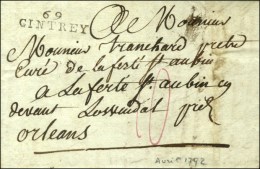 69
CINTREY
A Monsieur
Monsieur tranchard pretre
Curé de laferté St aubin
a Laferté St aubin cy
devant Lowendal près
orleans
avril 1792